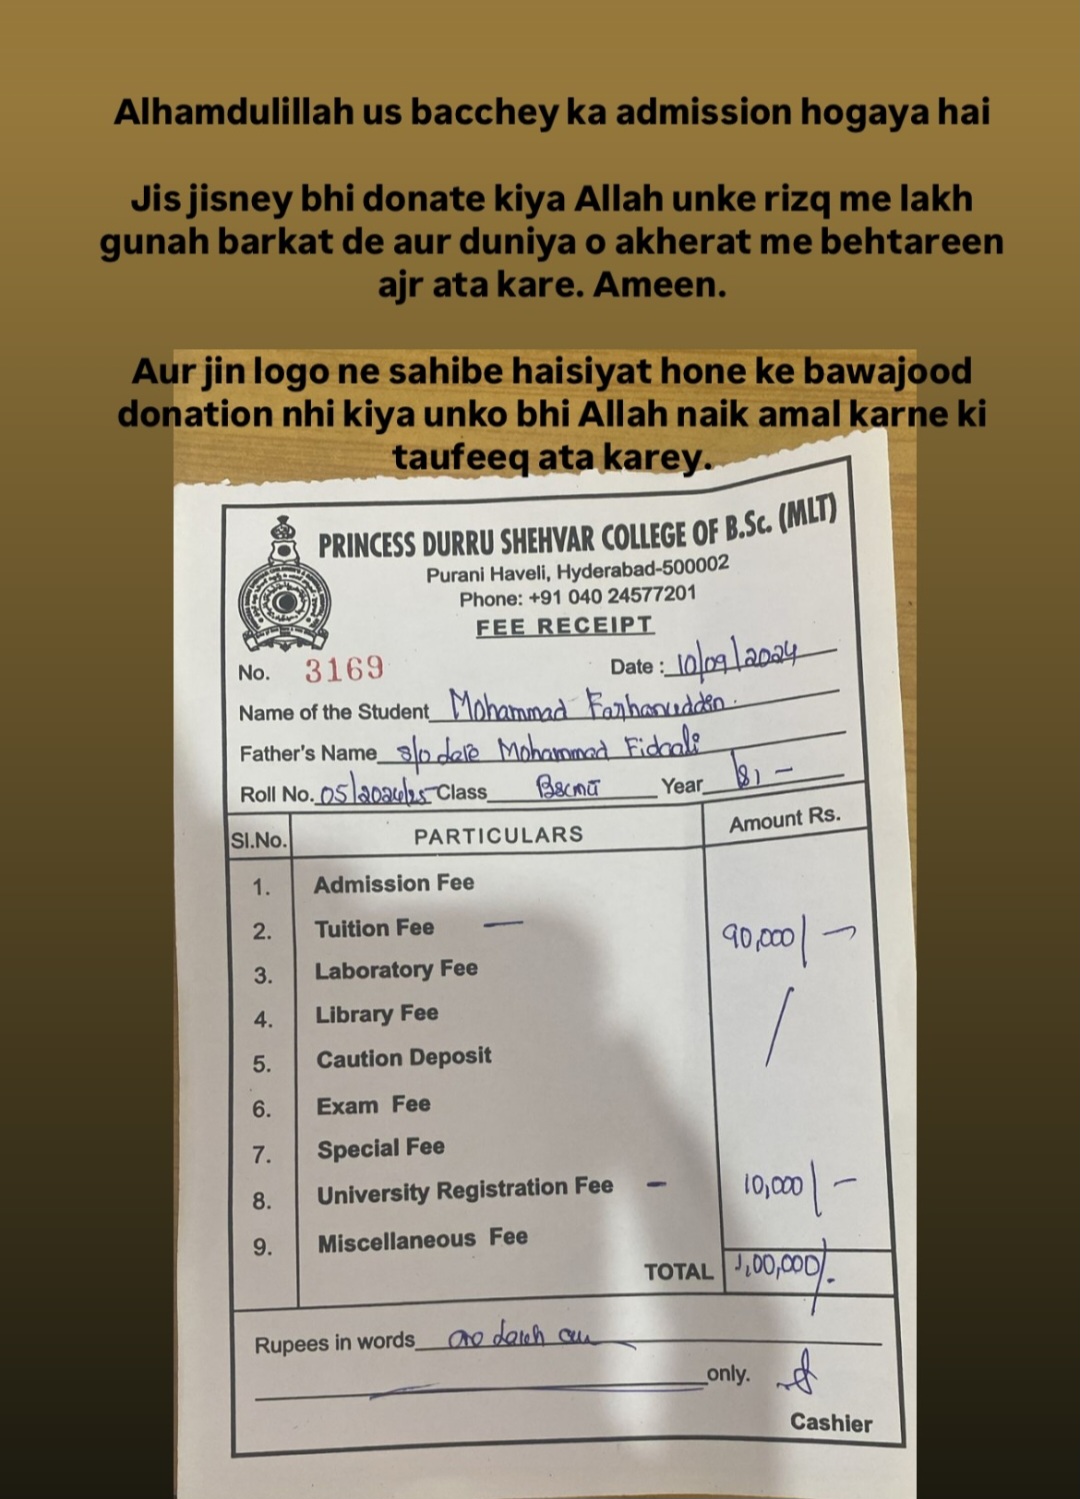 Alhamdulillah us bacchey ka admission hogaya hai
Jis jisney bhi donate kiya Allah unke rizq me lakh
gunah barkat de aur duniya o akherat me behtareen
ajr ata kare. Ameen.
Aur jin logo ne sahibe haisiyat hone ke bawajood
donation nhi kiya unko bhi Allah naik amal karne ki
taufeeq ata karey.
PRINCESS DURRU SHEHVAR COLLEGE OF B.Sc. (MLT)
Purani Haveli, Hyderabad-500002
Phone: +91 040 24577201
FEE RECEIPT
No. 3169 Date : 10/09/2024
Name of the Student Mohammad Farhanuddin.
Father's Name s/o late Mohammad Fidaali
Roll No. 05/2024/25 Class BscMLT Year
Sl.No. PARTICULARS Amount Rs.
1. Admission Fee
2. Tuition Fee — 90,000/-
3. Laboratory Fee
4. Library Fee
5. Caution Deposit
6. Exam Fee
7. Special Fee
8. University Registration Fee — 10,000/-
9. Miscellaneous Fee
TOTAL 1,00,000/-
Rupees in words one
only.
Cashier